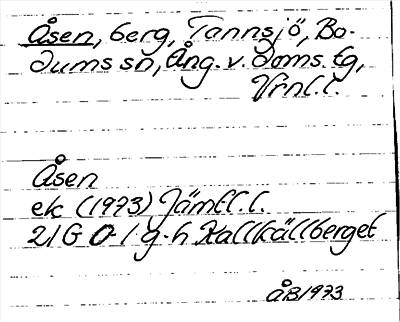 Åsen, berg, Tannsjö, Bo-
dums sn, Ång. v. doms. tg,
Vrnl. l.
Åsen
ek (1973) Jämtl. l.
21G 0-1 g-h Kallkällberget
ÅB 1973